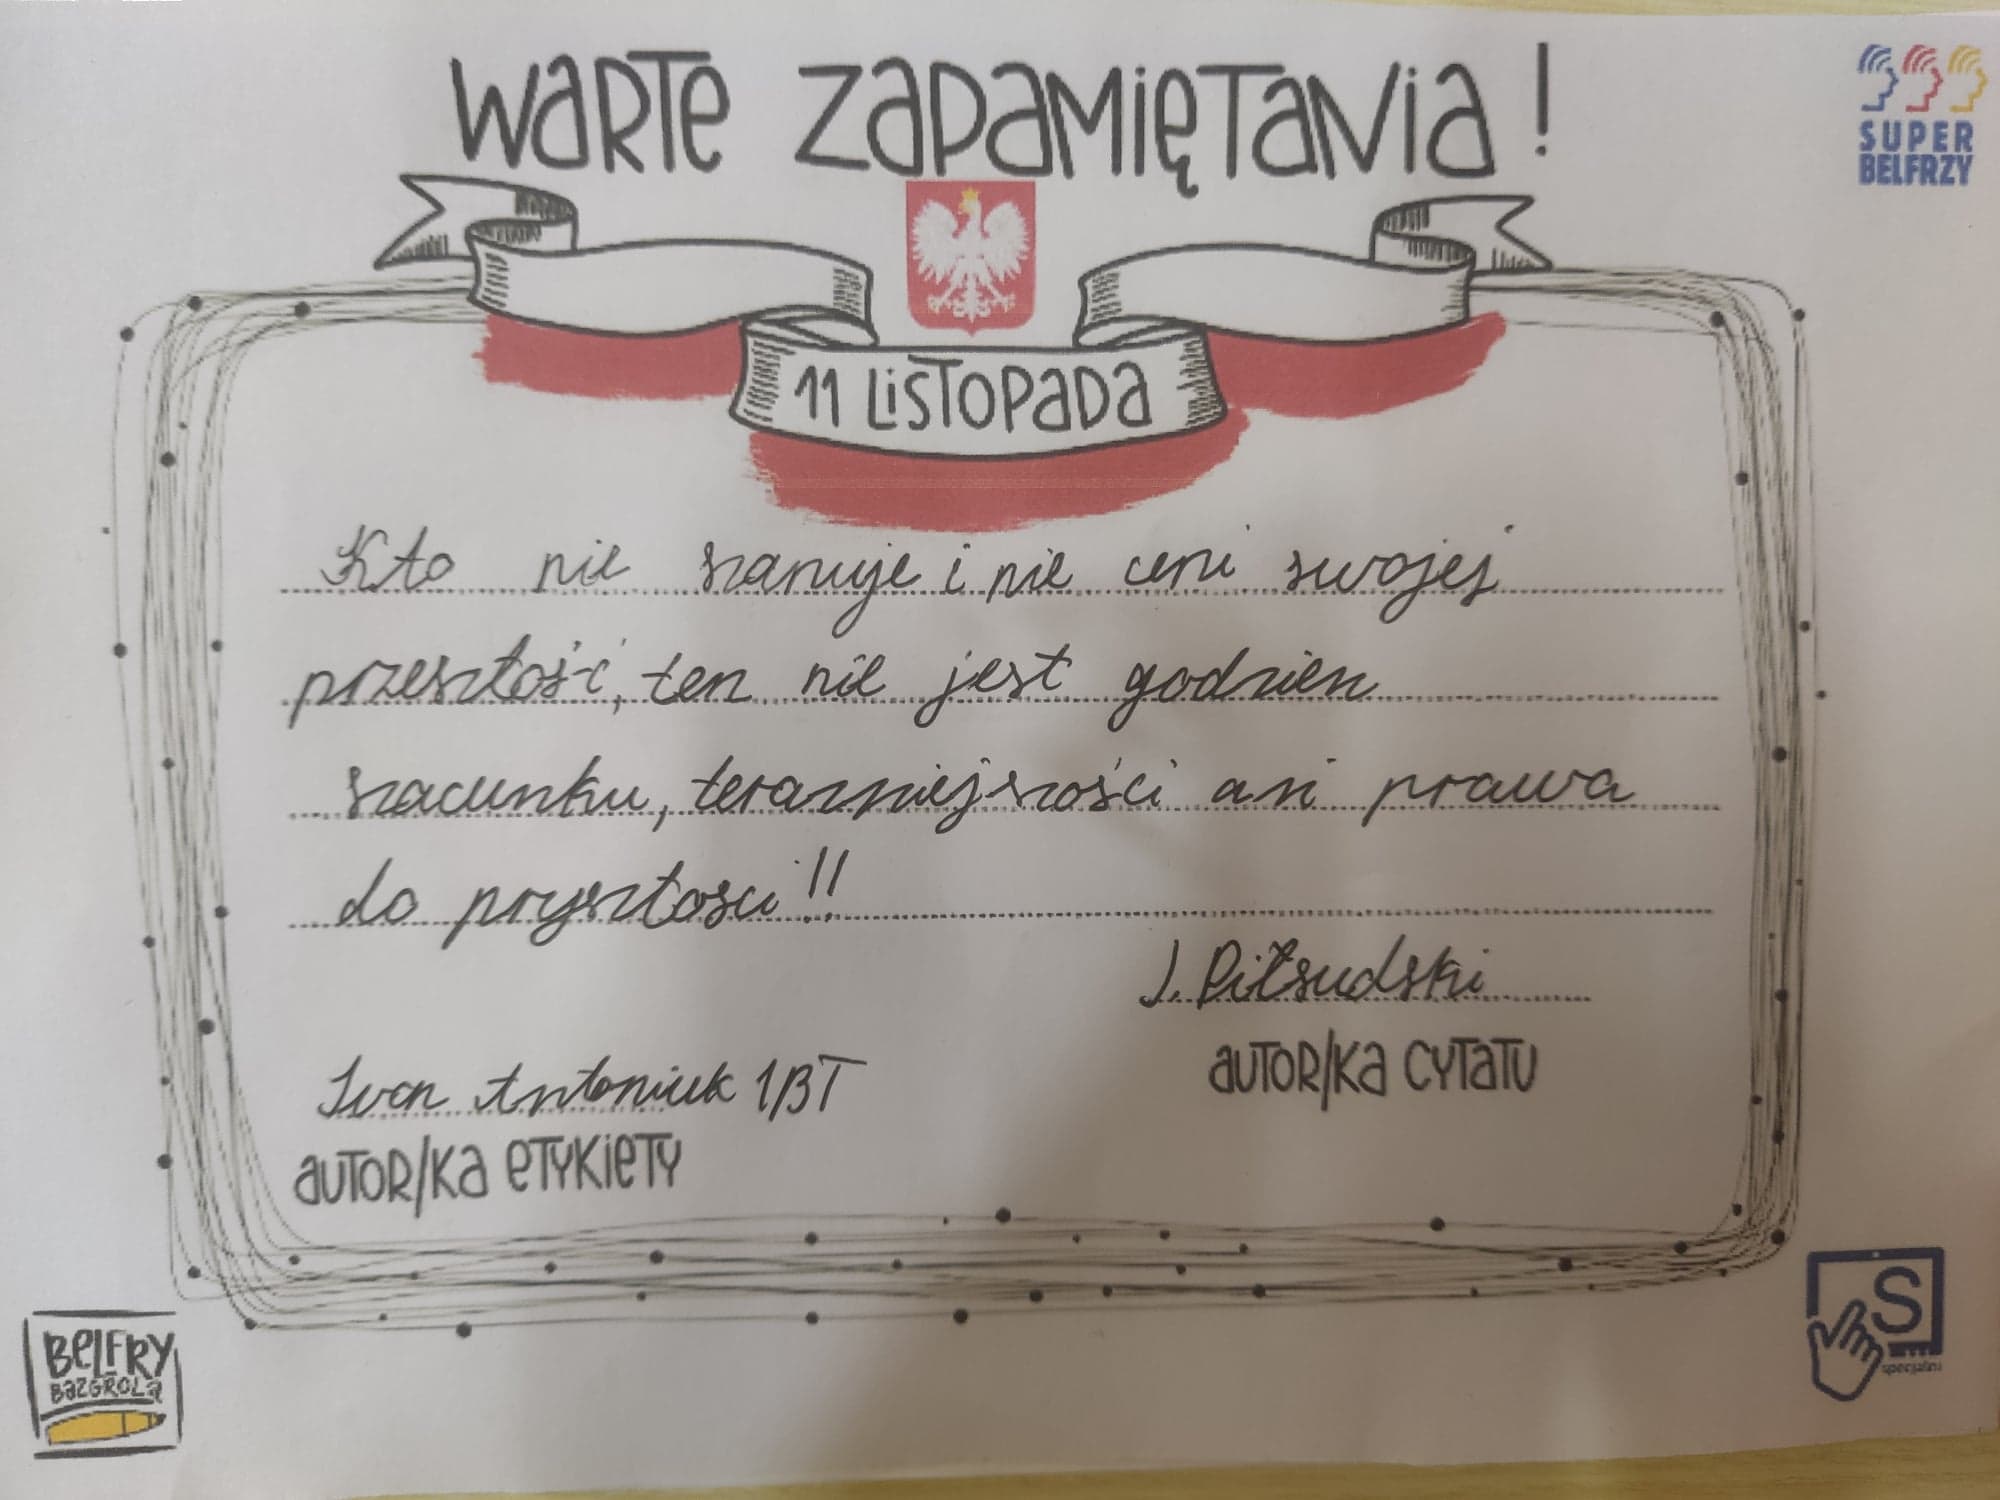 WARTE ZAPAMIĘTANIA!
SUPER
BELFRZY
11 LISTOPADA
Kto nie szanuje i nie ceni swojej
przeszłość, ten nie jest godzien
szacunku, teraźniejszości ani prawa
do pryszłosci!!
J. Piłsudski
AUTOR/KA CYTATU
Ivan Antoniuk 1/BT
AUTOR/KA ETYKIETY
BELFRY
BAZGROLĄ
S
specjalni